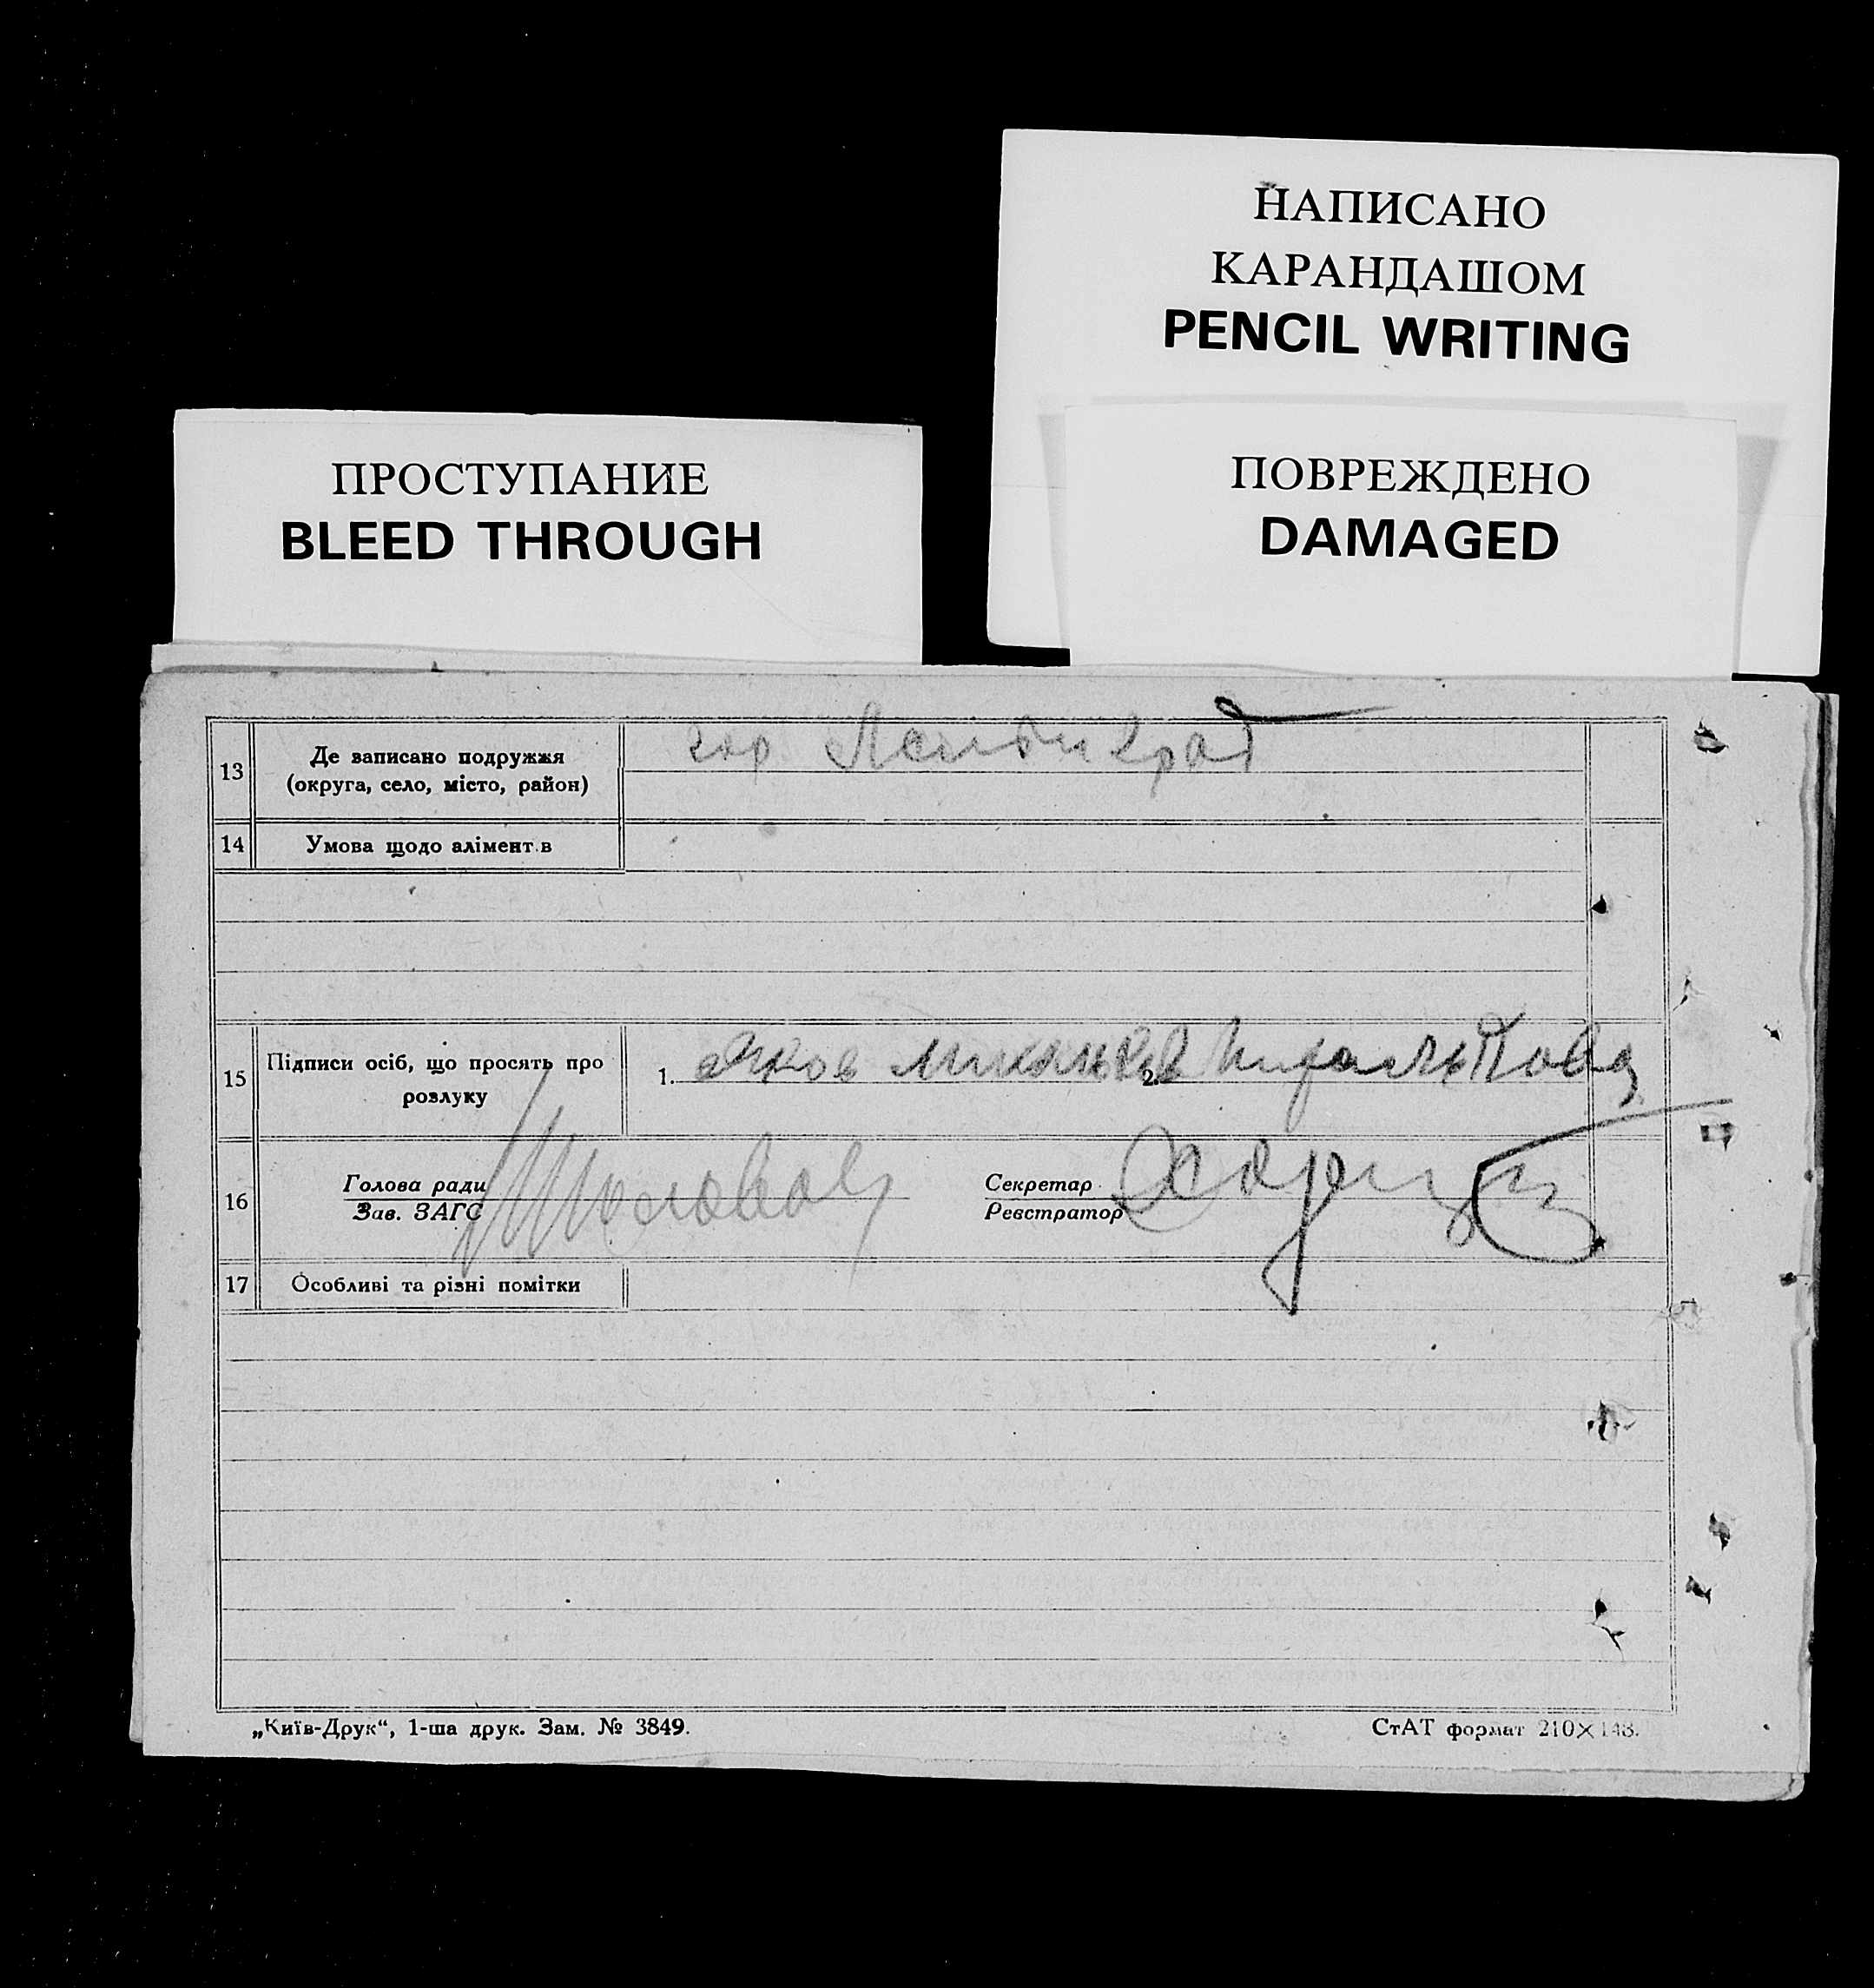 НАПИСАНО
КАРАНДАШОМ
PENCIL WRITING
ПРОСТУПАНИЕ
BLEED THROUGH
ПОВРЕЖДЕНО
DAMAGED
13 Де записано подружжя
(округа, село, місто, район)
гор Ленинград
14 Умова щодо алімент.в
15 Підписи осіб, що просять про
розлуку
1. Яков 2.
16 Голова ради
Зав. ЗАГС
Секретар
Реєстратор
17 Особливі та різні помітки
„Київ-Друк“, 1-ша друк. Зам. № 3849.
СтАТ формат 210×148.